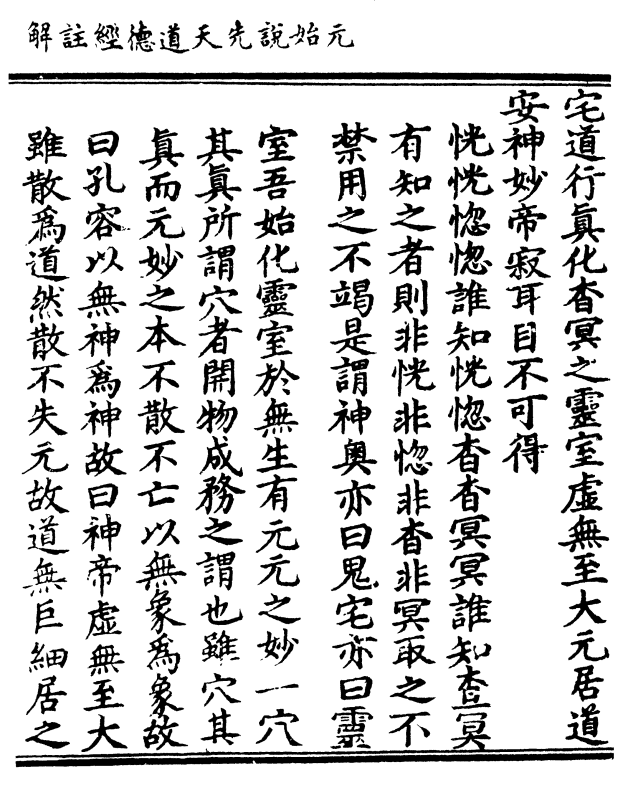 元始說先天道德經註解
宅道行眞化杳冥之靈室虛無至大元居道
安神妙帝寂耳目不可得
恍恍惚惚誰知恍惚杳杳冥冥誰知杳冥
有知之者則非恍非惚非杳非冥取之不
禁用之不竭是謂神奧亦曰鬼宅亦曰靈
室吾始化靈室於無生有元元之妙一穴
其眞所謂穴者開物成務之謂也雖穴其
眞而元妙之本不散不亡以無象爲象故
曰孔容以無神爲神故曰神帝虛無至大
雖散爲道然散不失元故道無巨細居之